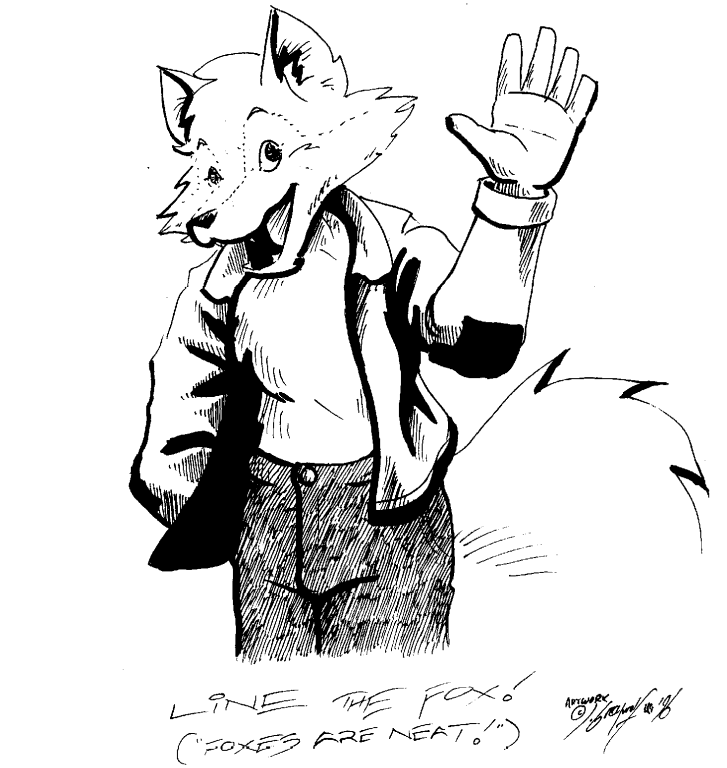 LINE THE FOX!
("FOXES ARE NEAT!")
ARTWORK
© '96